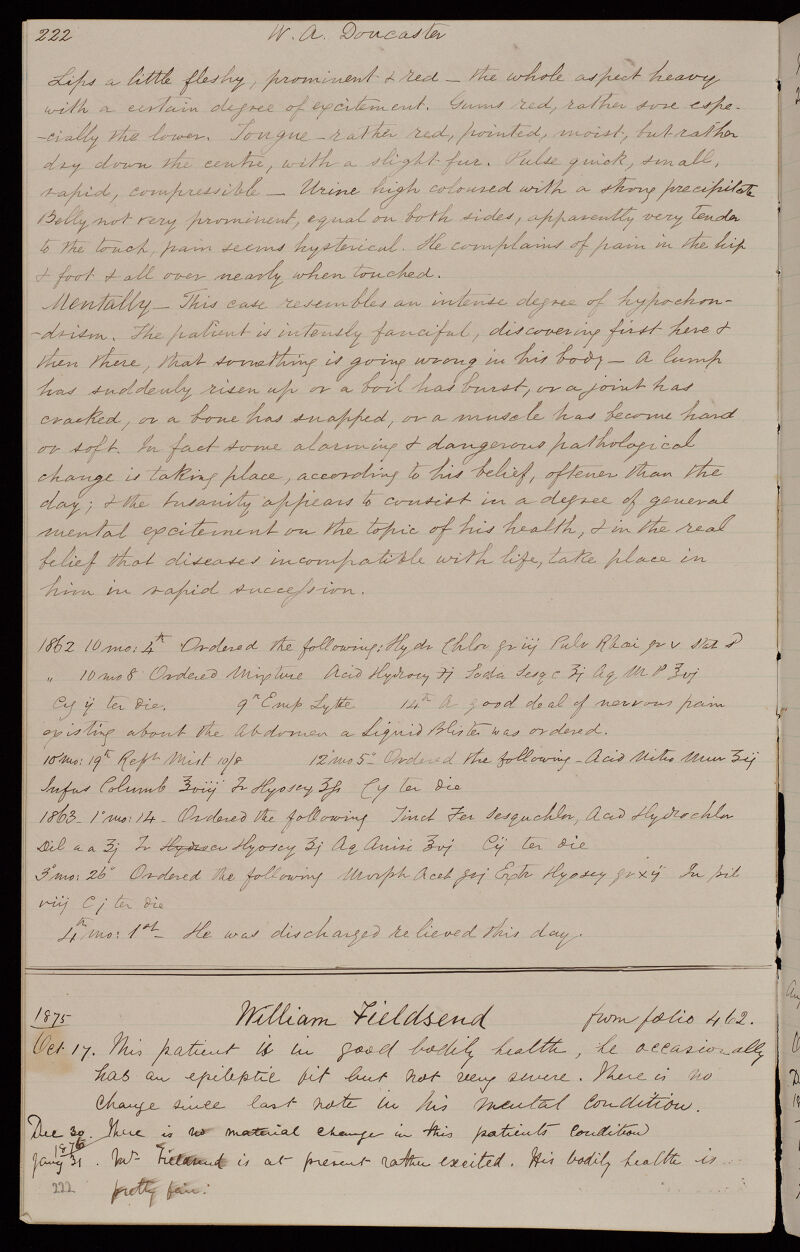 222 W. A. Doncaster
Lips a little fleshy, prominent & red – the whole aspect heavy
with a certain degree of excitement. Gums red, rather sore espe-
-cially the lower. Tongue – rather red, pointed, moist, but rather
dry down the centre, with a slight fur. Pulse quick, small,
rapid, compressible – Urine high coloured with a strong precipitate
Belly not very prominent, equal on both sides, apparently very tender
to the touch, pain seems hysterical. He complains of pain in the hip
& foot & all over nearly when touched.
Mentally – This case resembles an intense degree of hypochon-
-drism. The patient is intensely fanciful, discovering first here &
then there, that something is going wrong in his body – A lump
has suddenly risen up or a boil has burst, or a joint has
cracked, or a bone has snapped, or a muscle has become hard
or soft. In fact some alarming & dangerous pathological
change is taking place, according to his belief, oftener than the
day; & the Insanity appears to consist in a degree of general
mental excitement on the topic of his health, & in the real
belief that diseases incompatible with life, take place in
him in rapid succession.
1862 10 mo: 4th Ordered the following: Hydr Chlor gr iij Pulv Rhai gr v Stat S
„ 10 mo 8 Ordered Mixture Acid Hydrocy ʒj Soda Sesq c ʒj Aq M P ℥vj
Cy ij ter die. 9th Emp Lytte 14th A good deal of nervous pain
existing about the Abdomen a Liquid Blister was ordered.
10 mo: 19th Rept Mist 10/8 12 mo 5th Ordered the following – Acid Nitro Mur ʒij
Infus Columb ℥viij Tr Hyoscy ʒſs Cy ter die
1863 – 1st mo: 14 – Ordered the following Tinct Fer Sesquchlor, Acid Hydrochlor
Dil a a ʒj Tr Hyoscy ʒj Aq Anisi ℥vj Cij ter die
3rd mo: 26th Ordered the following Morph Acet grj Extr Hyoscy gr xij In pil
viij Cj ter die
4th mo: 1st – He was discharged relieved this day.
1875 William Fieldsend from folio 462.
Oct 17. This patient is in good bodily health, he occasionally
has an epileptic fit but not very severe. There is no
change since last note in his mental condition.
Dec 30. There is no material change in this patients condition
1876
Jany 31. Mr is at present rather excited. His bodily health is
222 pretty fair.